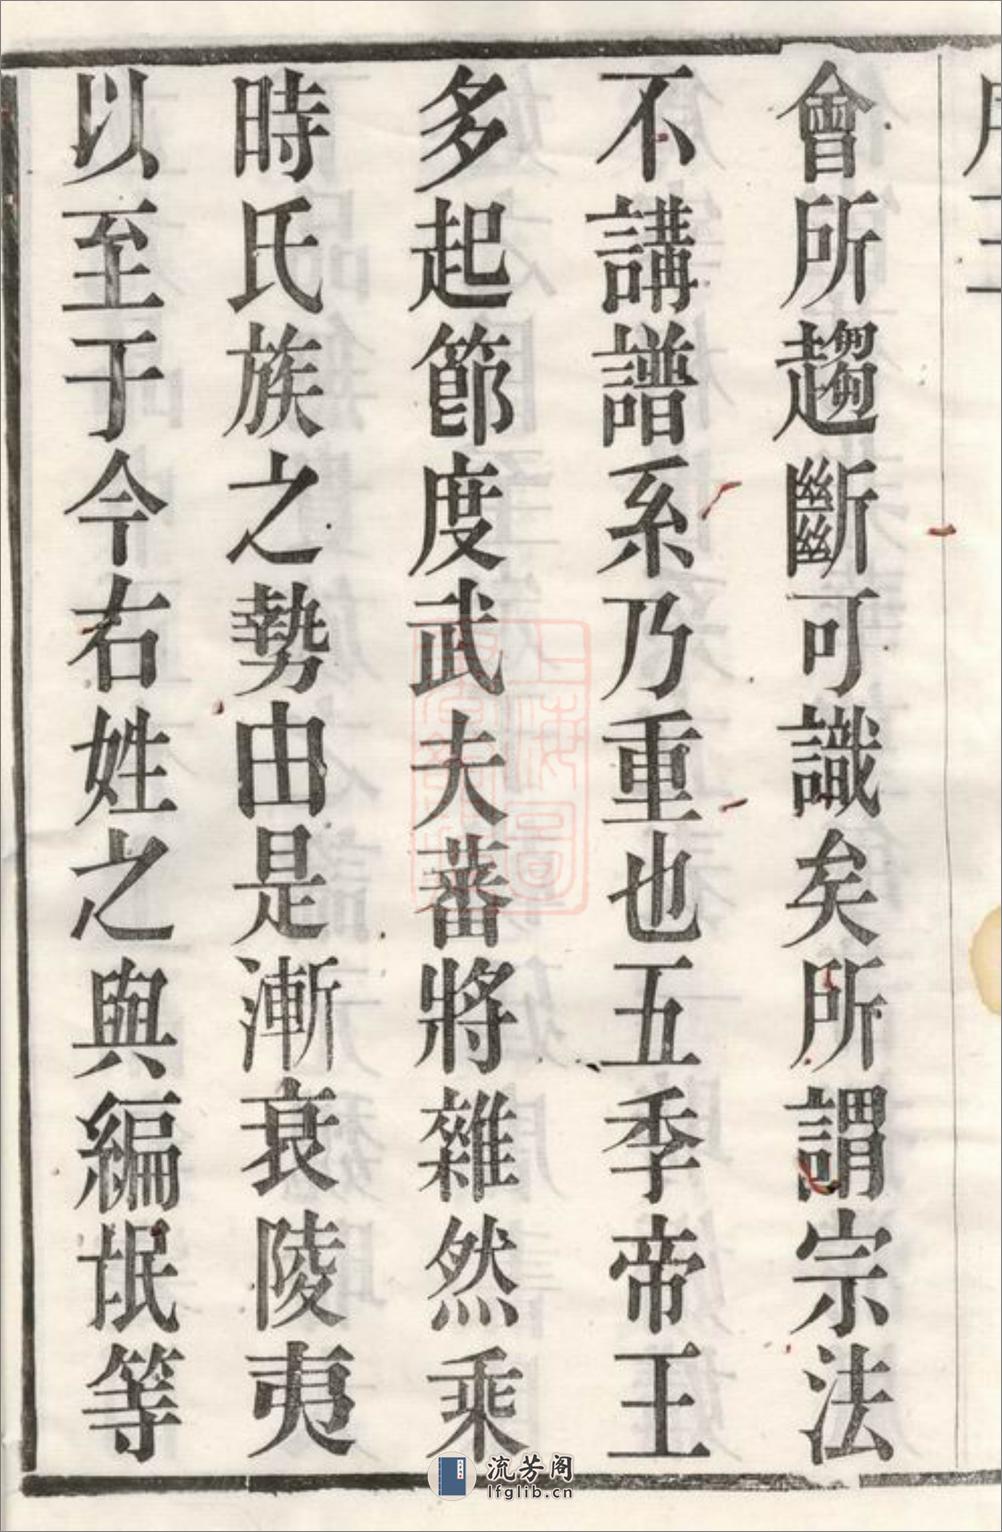 會所趨斷可識矣所謂宗法
不講譜系乃重也五季帝王
多起節度武夫蕃將雜然乘
時氏族之勢由是漸衰陵夷
以至于今右姓之與編氓等
流芳阁
lfglib.cn